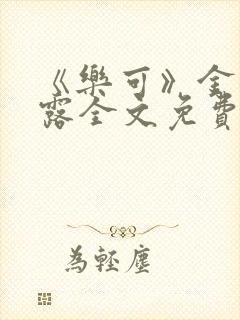 《樂可》金
露全文免費
為輕塵